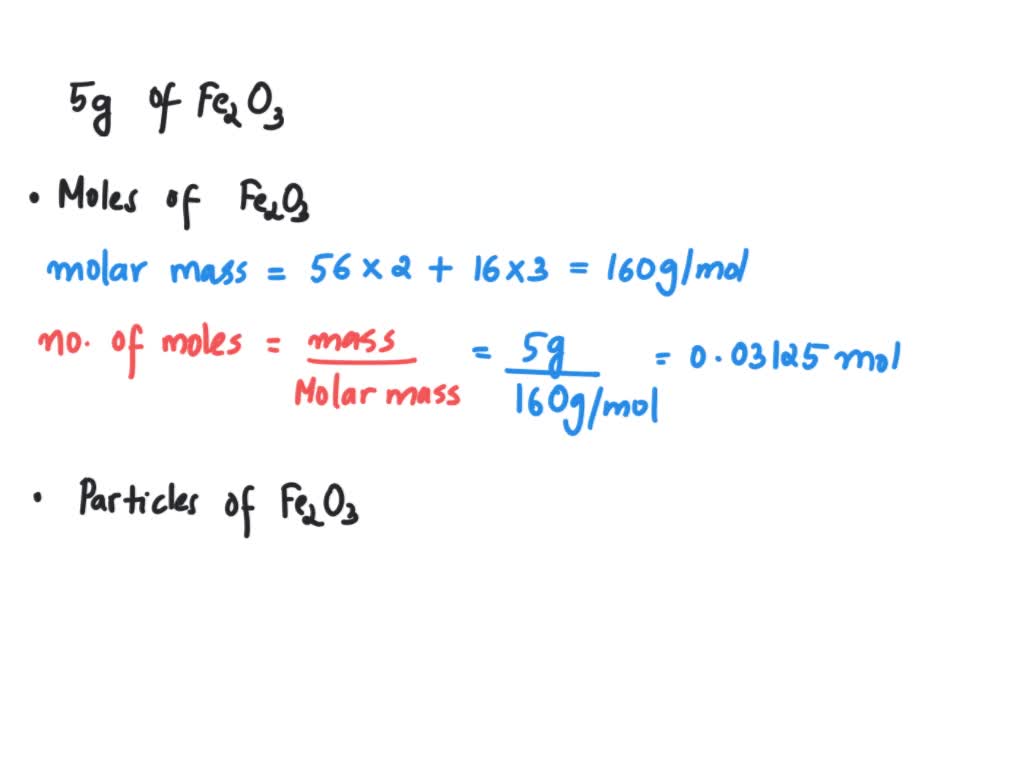 5g of Fe₂O₃
• Moles of Fe₂O₃
molar mass = 56 × 2 + 16 × 3 = 160g/mol
no. of moles = mass / Molar mass = 5g / 160g/mol = 0.03125 mol
• Particles of Fe₂O₃